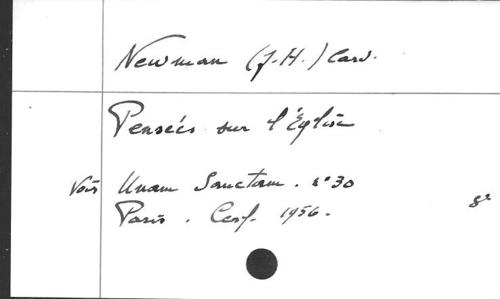 Newman (J.-H.) Card.
Pensées sur l'Église
Voir Unam Sanctam. n° 30
Paris. Cerf. 1956. 8°